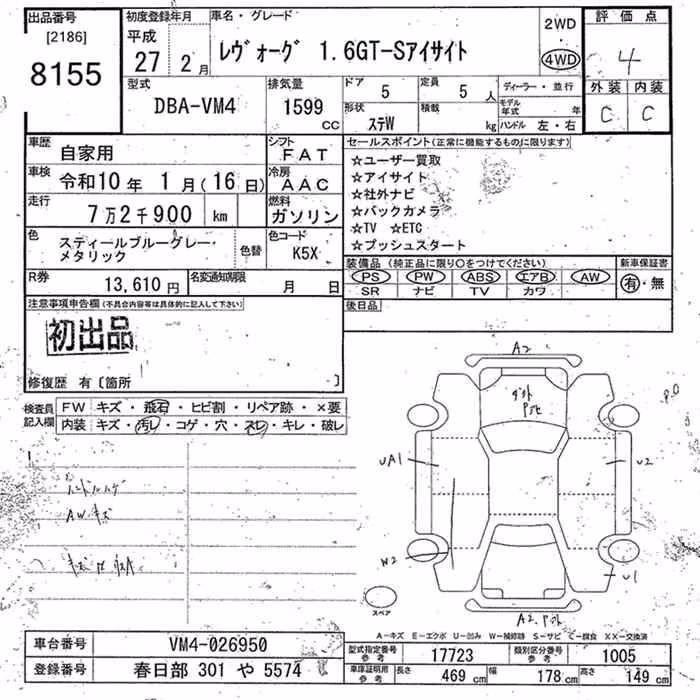 出品番号
[2186]
8155
初度登録年月
平成
27 2月
車名・グレード
レヴォーグ 1.6GT-Sアイサイト
2WD
4WD
評価点
4
外装 内装
C C
型式
DBA-VM4
排気量
1599
CC
ドア
5
定員
5 人
形状
ステW
積載
kg
ディーラー・並行
モデル年式 年
ハンドル 左・右
車歴
自家用
シフト
FAT
車検
令和10年 1月(16日)
冷房
AAC
走行
7万2千900 km
燃料
ガソリン
色
スティールブルーグレー・
メタリック
色替
色コード
K5X
R券
13,610円
名変通知期限
月 日
セールスポイント(正常に機能するものに限ります)
☆ユーザー買取
☆アイサイト
☆社外ナビ
☆バックカメラ
☆TV ☆ETC
☆プッシュスタート
装備品(純正品に限り○をつけてください)
PS PW ABS エアB AW
SR ナビ TV カワ
新車保証書
有・無
後日品
注意事項申告欄(不具合内容等は具体的に記入して下さい)
初出品
修復歴 有〔箇所 〕
検査員
記入欄
FW キズ・飛石・ヒビ割・リペア跡・×要
内装 キズ・汚レ・コゲ・穴・スレ・キレ・破レ
AWキズ
A2
UA1
U2
W2
U1
スペア
A-キズ E-エクボ U-凹み W-補修跡 S-サビ C-腐食 XX-交換済
車台番号
VM4-026950
登録番号
春日部 301 や 5574
型式指定番号
参考
17723
類別区分番号
参考
1005
車庫証明用
参考
長さ
469 cm
幅
178 cm
高さ
149 cm